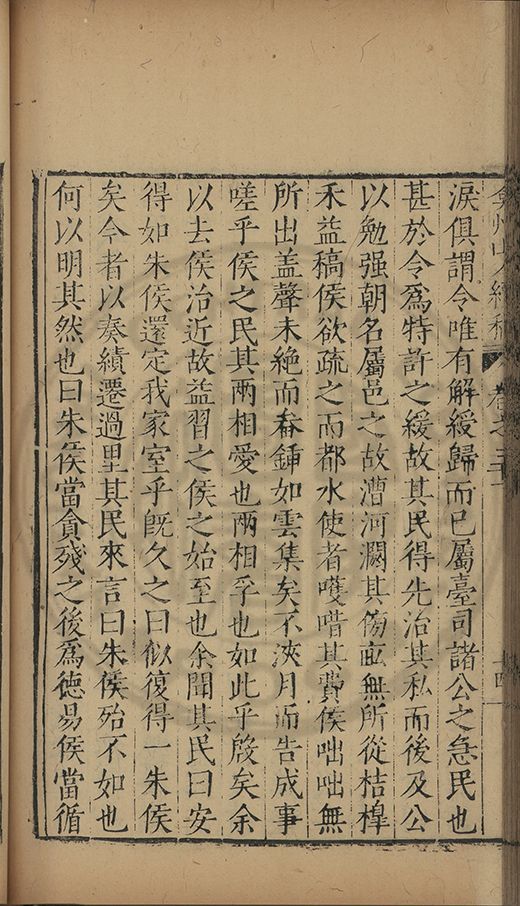 弇州山人續稿 卷之三十一 十四
淚俱謂令唯有解綬歸而已屬臺司諸公之急民也
甚於令爲特許之緩故其民得先治其私而後及公
以勉强朝名屬邑之故漕河濶其傍畝無所從桔橰
禾益稿侯欲疏之而都水使者嘆唶其費侯咄咄無
所出盖聲未絶而畚鍤如雲集矣不浹月而告成事
嗟乎侯之民其兩相愛也兩相孚也如此乎殷矣余
以去侯治近故益習之侯之始至也余聞其民曰安
得如朱侯還定我家室乎旣久之曰似復得一朱侯
矣今者以奏績遷過里其民來言曰朱侯殆不如也
何以明其然也曰朱侯當貪殘之後爲德易侯當循